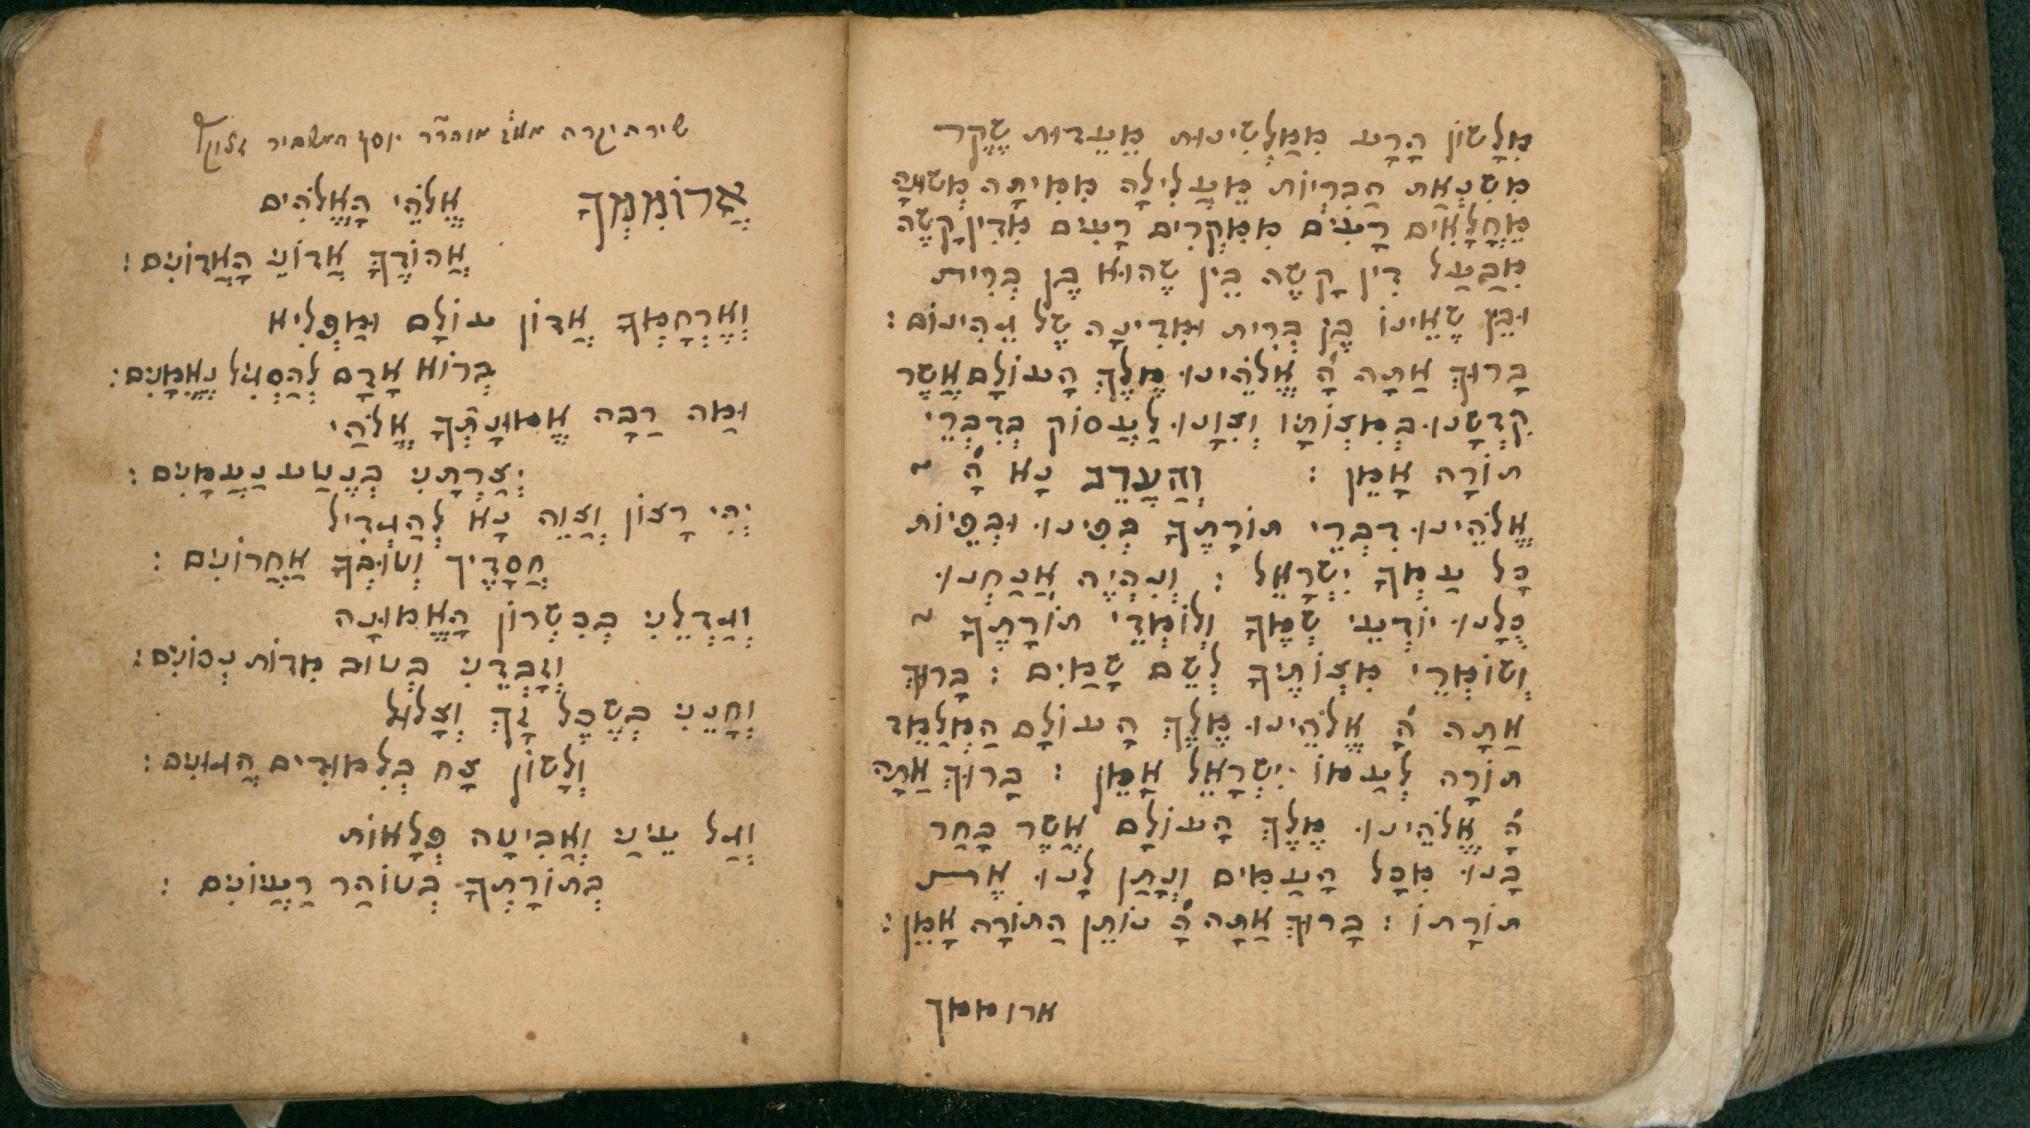 מִלָשוֹן הָרָע מִמַלְשִינוּת מֵעֵדוּת שֶקֶר
מִשִנְאַת הַבְרִיוֹת מֵעֲלִילָה מִמִיתָה מְשוּנָה
מֵחֳלָאִים רָעִים מִמִקְרִים רָעִים מִדִין קָשֶה
מִבַעַל דִין קָשֶה בֵין שֶהוּא בֶן בְרִית
וּבֵין שֶאֵינוֹ בֶן בְרִית וּמִדִינָה שֶל גֵהִינוֹם :
בָרוּךְ אַתָה הָ' אֱלֹהֵינוּ מֶלֶךְ הָעוֹלָם אֲשֶר
קִדְשָנוּ בְמִצְוֹתָיו וְצִוָנוּ לַעֲסוֹק בְדִבְרֵי
תוֹרָה אָמֵן : וְהַעֲרֵב נָא הָ' ~
אֱלֹהֵינוּ דִבְרֵי תוֹרָתֶךָ בְפִינוּ וּבְפִיוֹת
כָל עַמְךָ יִשְרָאֵל : וְנִהְיֶה אֲנַחְנוּ
כֻלָנוּ יוֹדְעֵי שְמֶךָ וְלוֹמְדֵי תוֹרָתֶךָ ~
וְשוֹמְרֵי מִצְוֹתֶיךָ לְשֵם שָמַיִם : בָרוּךְ
אַתָה הָ' אֱלֹהֵינוּ מֶלֶךְ הָעוֹלָם הַמְלַמֵד
תוֹרָה לְעַמוֹ יִשְרָאֵל אָמֵן : בָרוּךְ אַתָה
הָ' אֱלֹהֵינוּ מֶלֶךְ הָעוֹלָם אֲשֶר בָחַר
בָנוּ מִכָל הָעַמִים וְנָתַן לָנוּ אֶת
תוֹרָתוֹ : בָרוּךְ אַתָה הָ' נוֹתֵן הַתוֹרָה אָמֵן :
ארוממך
שירה יקרה מוהר"ר יוסף המשביר
אֲרוֹמִמְךָ אֱלֹהֵי הָאֱלֹהִים
אֲהוֹדֶךָ אֲדוֹנֵי הָאֲדוֹנִים :
וְאֶרְחָמְךָ אֲדוֹן עוֹלָם וּמַפְלִיא
בְרוֹא אָדָם לְהַסְגִיל נֶאֱמָנִים :
וּמַה רַבָה אֱמוּנָתְךָ אֱלֹהַי
יְצַרְתָנִי כְנֶטַע נַעֲמָנִים :
יְהִי רָצוֹן וְצַוֵה נָא לְהַגְדִיל
חֲסָדֶיךָ וְטוּבְךָ אַחֲרוֹנִים :
וְגַדְלֵנִי בְכִשְרוֹן הָאֱמוּנָה
וְכַבְדֵנִי בְטוּב מִדוֹת נְכוֹנִים :
וְחָנֵנִי בְשֶכֶל זָךְ וְצָלוּל
וְלָשוֹן צָח כְלִמוּדִים הֲגוּנִים :
וְגַל עֵינַי וְאַבִיטָה פְלָאוֹת
בְתוֹרָתְךָ בְטוֹהַר רַעֲיוֹנִים :